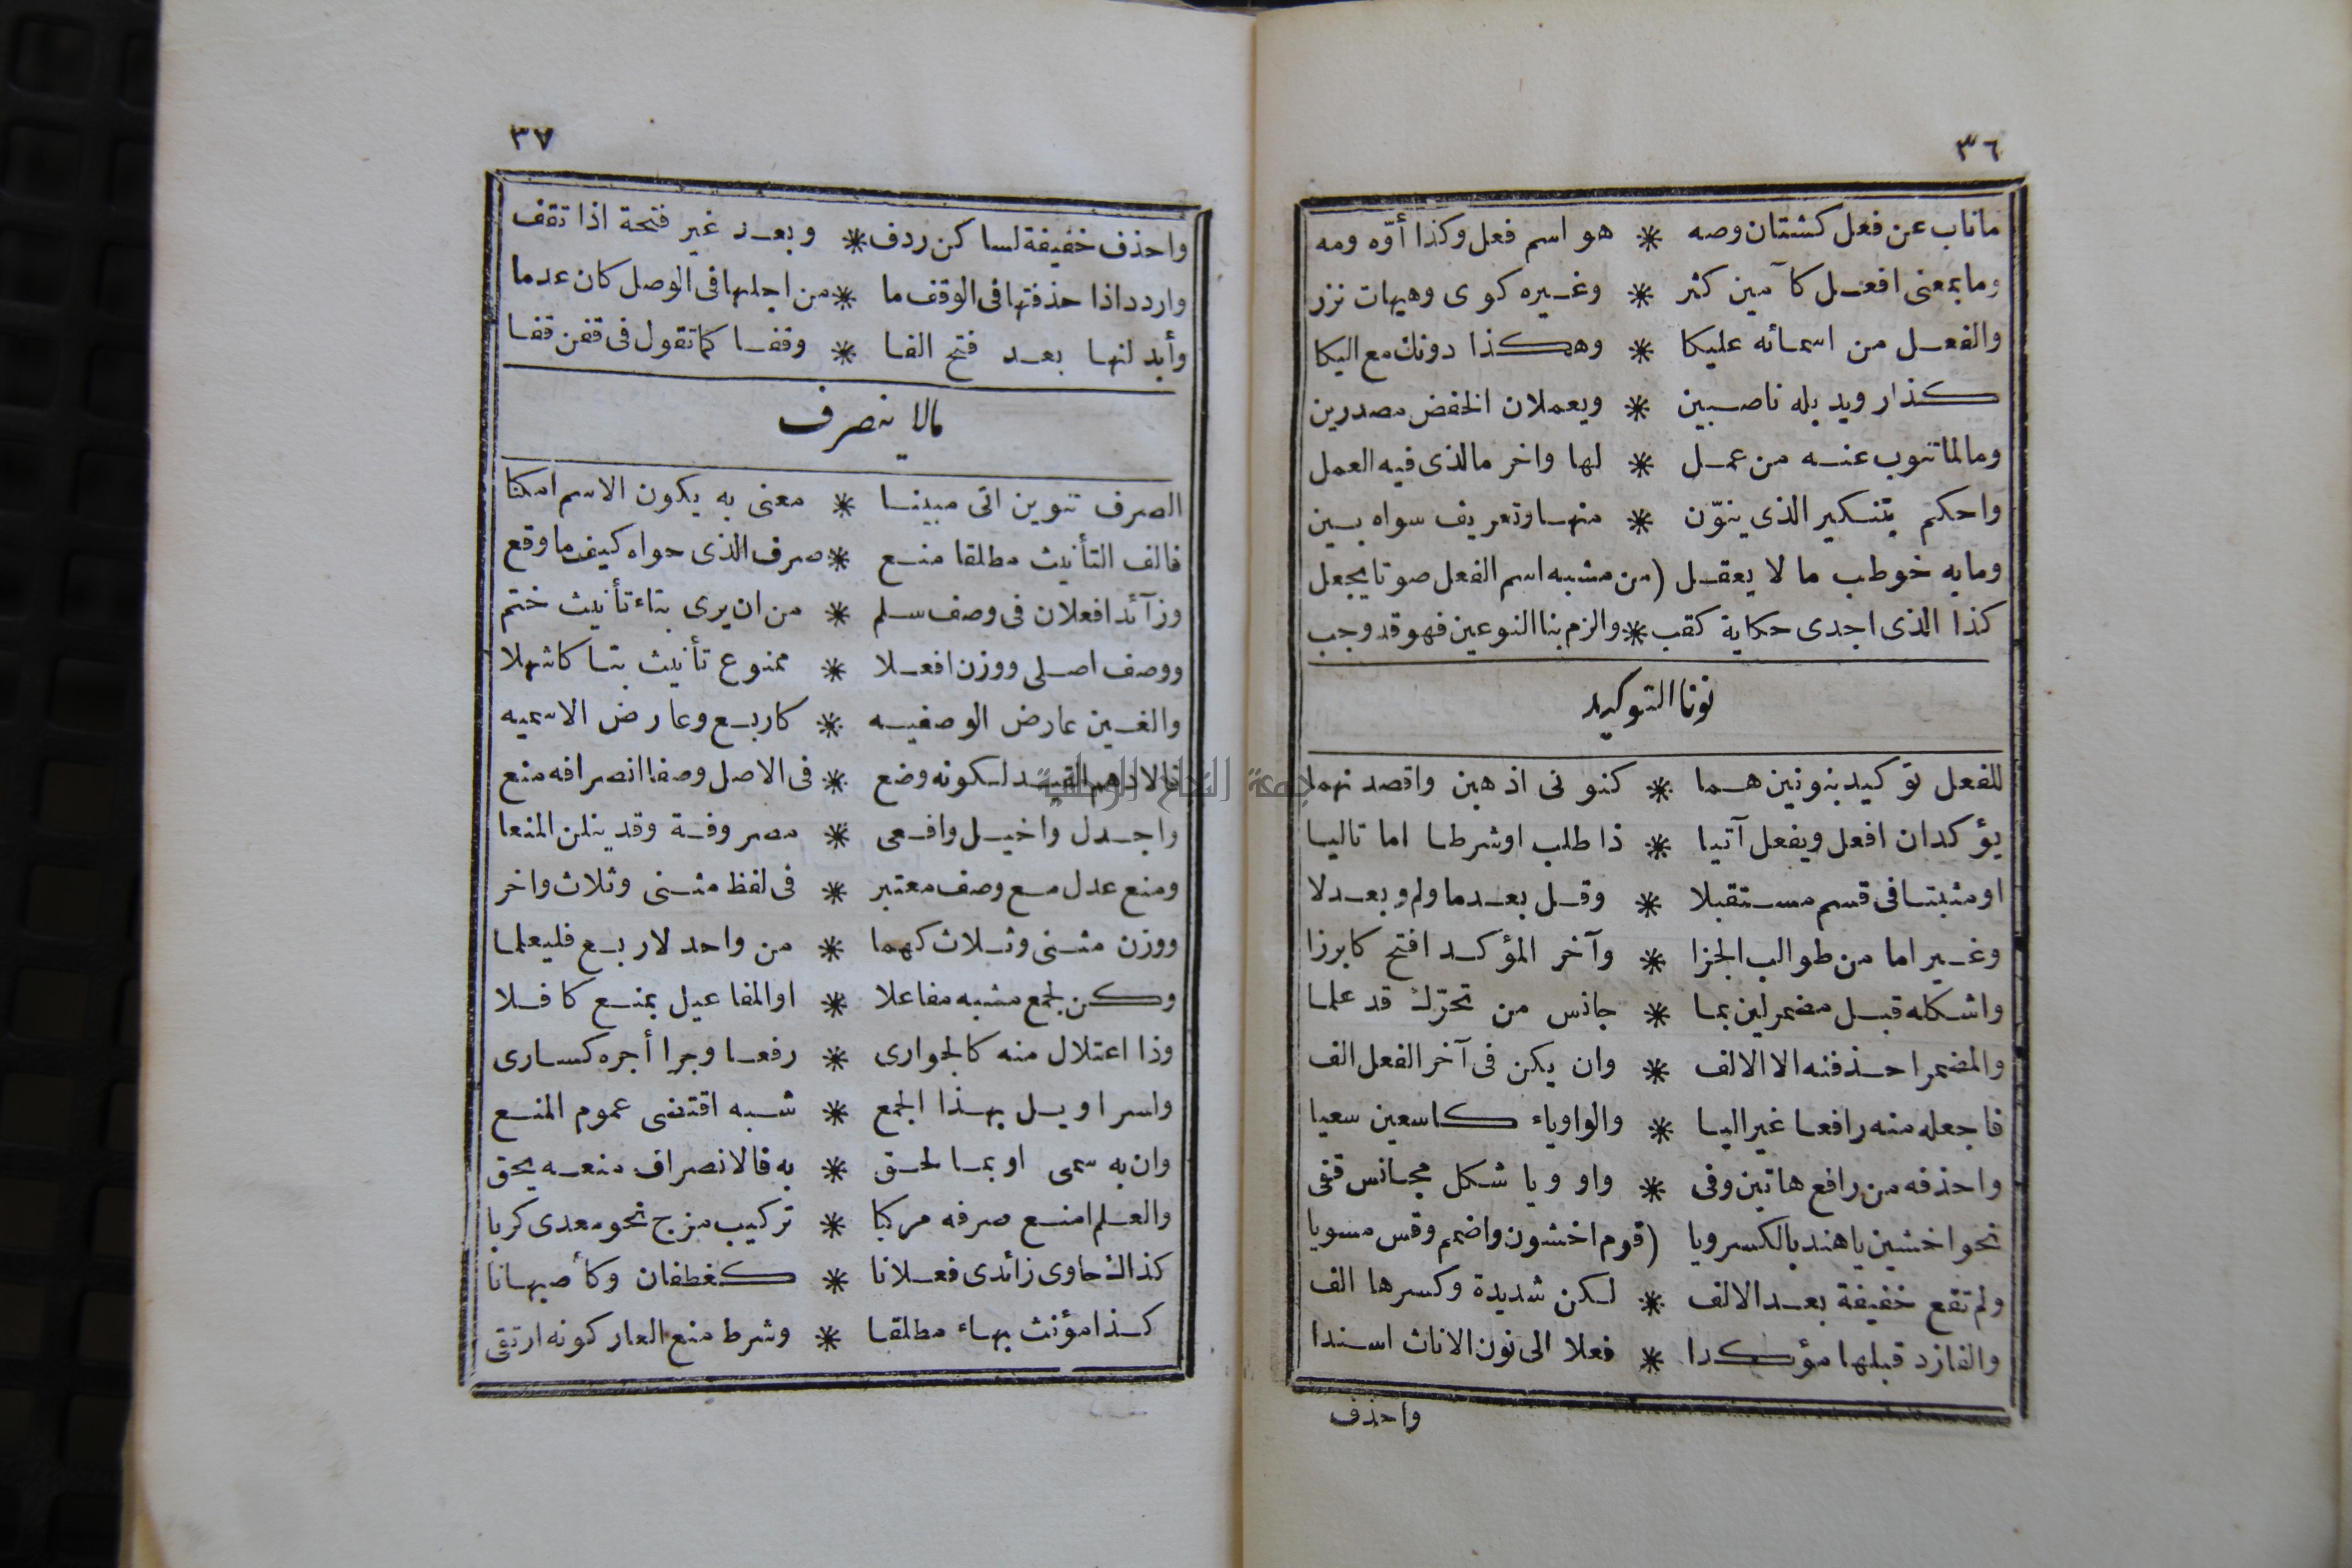 ٣٦
ماناب عن فعل كشتان وصه * هو اسم فعل وكذا أوّه ومه
وما بمعنى افعل كآمين كثر * وغيره كوى وهيهات نزر
والفعل من اسمائه عليكا * وهكذا دونك مع اليكا
كذا رويد بله ناصبين * ويعملان الخفض مصدرين
وما لما تنوب عنه من عمل * لها واخر ما لذى فيه العمل
واحكم بتنكير الذى ينوّن * منها وتعريف سواه بين
وما به خوطب ما لا يعقل (من مشبه اسم الفعل صوتا يجعل
كذا الذى اجدى حكاية كقب * والزم بنا النوعين فهو قد وجب
نونا التوكيد
للفعل توكيد بنونين هما * كنونى اذهبن واقصدنهما
يؤكدان افعل ويفعل آتيا * ذا طلب او شرطا اما تاليا
او مثبتا فى قسم مستقبلا * وقل بعد ما ولم وبعد لا
وغير اما من طوالب الجزا * وآخر المؤكد افتح كابرزا
واشكله قبل مضمر لين بما * جانس من تحرّك قد علما
والمضمر احذفنه الا الالف * وان يكن فى آخر الفعل الف
فاجعله منه رافعا غير اليا * والواو ياء كاسعين سعيا
واحذفه من رافع هاتين وفى * واو ويا شكل مجانس قفى
نحو اخشين يا هند بالكسر ويا (قوم اخشون واضمم وقس مسويا
ولم تقع خفيفة بعد الالف * لكن شديدة وكسرها الف
والفا زد قبلها مؤكدا * فعلا الى نون الاناث اسندا
واحذف
٣٧
واحذف خفيفة لساكن ردف * وبعد غير فتحة اذا تقف
واردد اذا حذفتها فى الوقف ما * من اجلها فى الوصل كان عدما
وأبدلنها بعد فتح الفا * وقفا كما تقول فى قفن قفا
مالا ينصرف
الصرف تنوين اتى مبينا * معنى به يكون الاسم امكنا
فالف التأنيث مطلقا منع * صرف الذى حواه كيف ما وقع
وزآئدا فعلان فى وصف سلم * من ان يرى بتاء تأنيث ختم
ووصف اصلى ووزن افعلا * ممنوع تأنيث بتا كاشهلا
والغين عارض الوصفيه * كاربع وعارض الاسميه
فالادهم القيد لكونه وضع * فى الاصل وصفا انصرافه منع
واجدل واخيل وافعى * مصروفة وقد ينلن المنعا
ومنع عدل مع وصف معتبر * فى لفظ مثنى وثلاث واخر
ووزن مثنى وثلاث كهما * من واحد لاربع فليعلما
وكن لجمع مشبه مفاعلا * او المفاعيل بمنع كافلا
وذا اعتلال منه كالجوارى * رفعا وجرا أجره كسارى
واسراويل بهذا الجمع * شبه اقتضى عموم المنع
وان به سمى او بما لحق * به فالانصراف منعه يحق
والعلم امنع صرفه مركبا * تركيب مزج نحو معدى كربا
كذاك حاوى زائدى فعلانا * كغطفان وكأصبهانا
كذا مؤنث بهاء مطلقا * وشرط منع العار كونه ارتقى